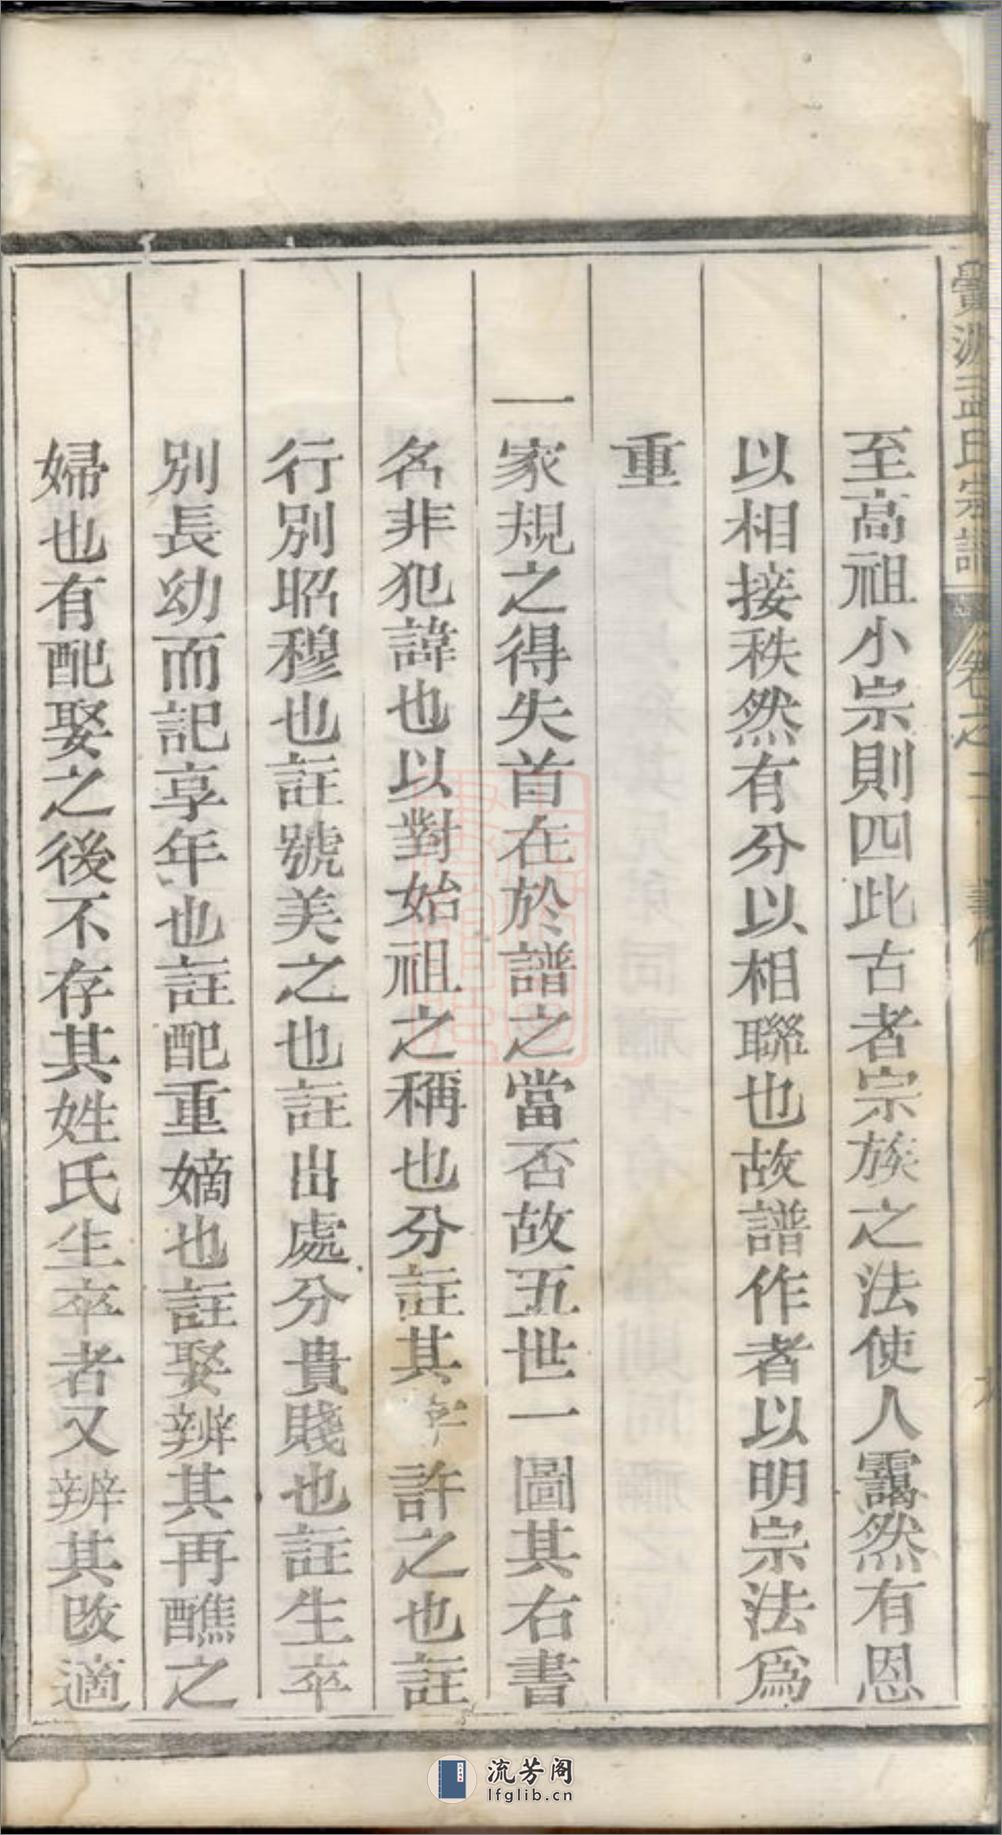 至高祖小宗則四此古者宗族之法使人靄然有恩
以相接秩然有分以相聯也故譜作者以明宗法爲
重
一家規之得失首在於譜之當否故五世一圖其右書
名非犯諱也以對始祖之稱也分註其 許之也註
行別昭穆也註號美之也註出處分貴賤也註生卒
別長幼而記享年也註配重嫡也註娶辨其再醮之
婦也有配娶之後不存其姓氏生卒者又辨其改適
孟氏宗譜
卷之二
流芳阁
lfglib.cn